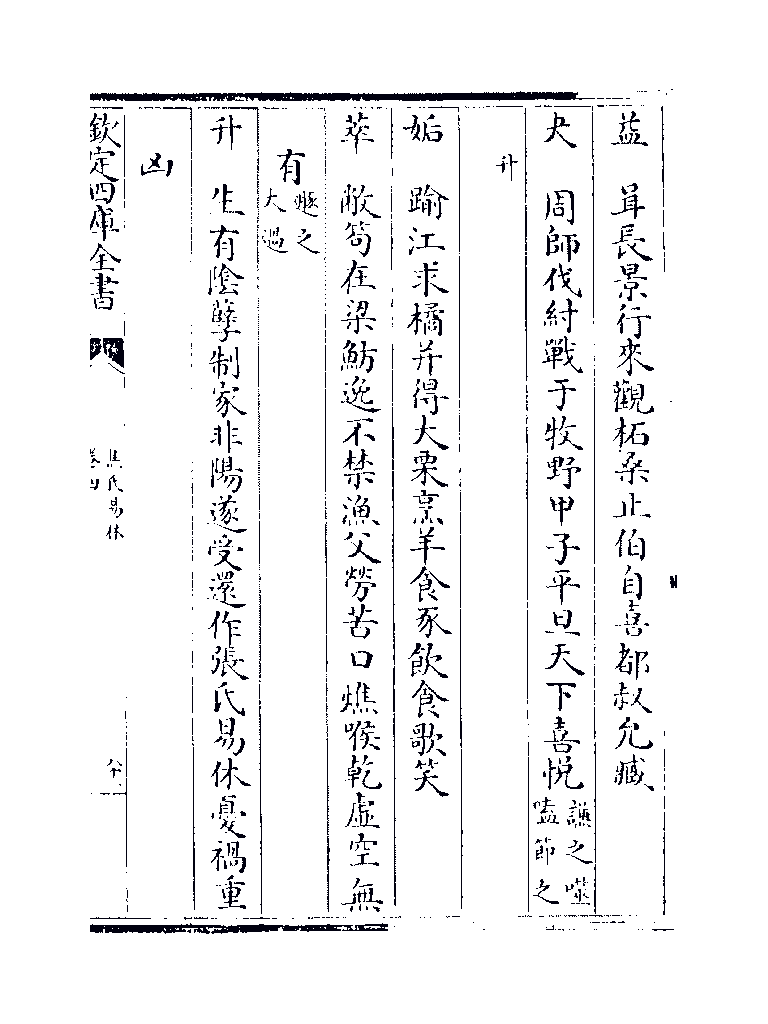 益　茸長景行來觀柘桑止伯自喜都叔允臧
夬　周師伐紂戰于牧野甲子平旦天下喜悅謙之噬
嗑節之
升
姤　踰江求橘并得大栗烹羊食豕飲食歌笑
萃　敝笱在梁魴逸不禁漁父勞苦口燋喉乾虛空無
有遯之
大過
升　生有陰孽制家非陽遂受還作張氏易休憂禍重
凶
欽定四庫全書
焦氏易林
卷四